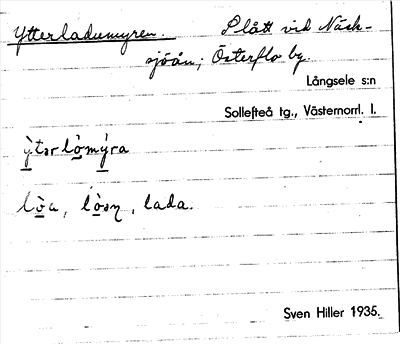 Ytterladumyren. Slått vid Näsk-
sjöån; Österflo by.
Långsele s:n
Sollefteå tg., Västernorrl. l.
ỳtər lò̱mỳra
lò̱a, lò̱an, lada.
Sven Hiller 1935.